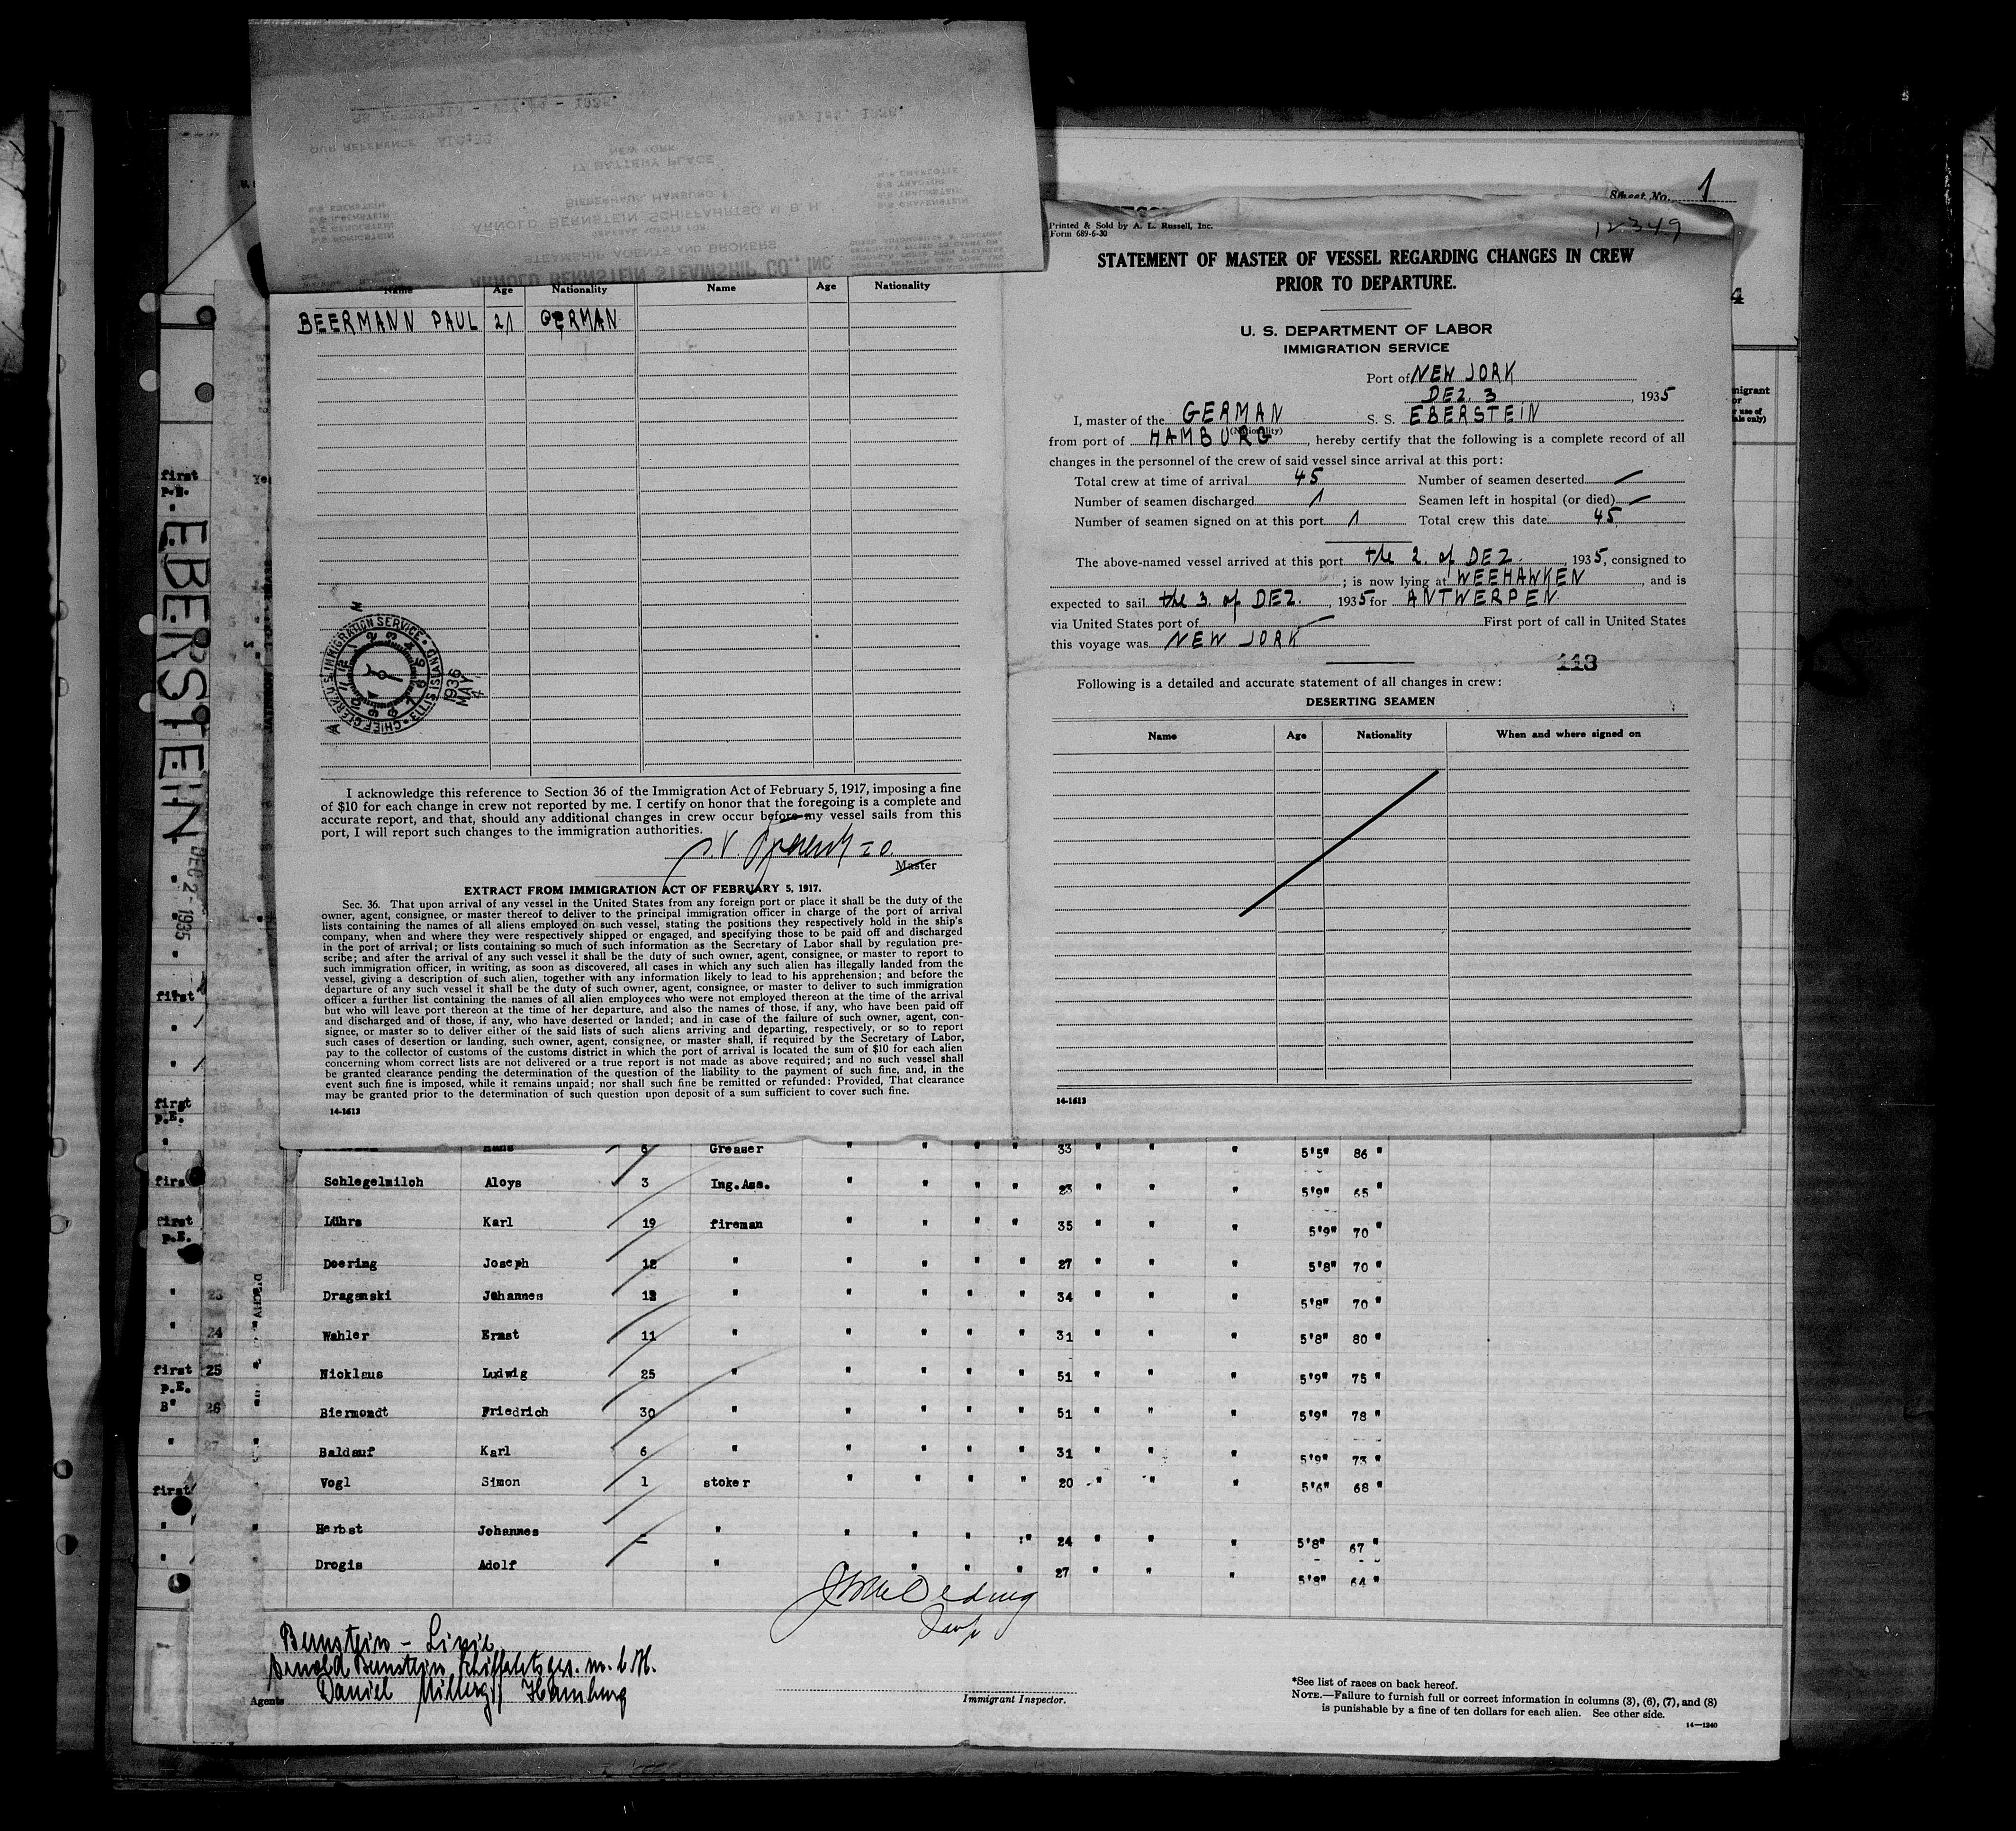 Sheet No. 1
12349
Printed & Sold by A. L. Russell, Inc.
Form 689-6-30
STATEMENT OF MASTER OF VESSEL REGARDING CHANGES IN CREW
PRIOR TO DEPARTURE.
U. S. DEPARTMENT OF LABOR
IMMIGRATION SERVICE
Port of NEW JORK
DEZ. 3, 1935
I, master of the GERMAN S. S. EBERSTEIN
(Nationality)
from port of HAMBURG, hereby certify that the following is a complete record of all
changes in the personnel of the crew of said vessel since arrival at this port:
Total crew at time of arrival 45 Number of seamen deserted —
Number of seamen discharged 1 Seamen left in hospital (or died) —
Number of seamen signed on at this port 1 Total crew this date 45
The above-named vessel arrived at this port the 2. of DEZ. 1935, consigned to
; is now lying at WEEHAWKEN, and is
expected to sail the 3. of DEZ., 1935 for ANTWERPEN
via United States port of — First port of call in United States
this voyage was NEW JORK
113
Following is a detailed and accurate statement of all changes in crew:
DESERTING SEAMEN
Name Age Nationality When and where signed on
14-1613
OUR REFERENCE
NEW YORK
17 BATTERY PLACE
BIEBERHAUS, HAMBURG 1
ARNOLD BERNSTEIN SCHIFFAHRTSG. M. B. H.
GENERAL AGENTS FOR
STEAMSHIP AGENTS AND BROKERS
ARNOLD BERNSTEIN STEAMSHIP CO., INC.
Name Age Nationality Name Age Nationality
BEERMANN PAUL 21 GERMAN
CHIEF CLERK, U. S. IMMIGRATION SERVICE • ELLIS ISLAND
1936 MAY 4
I acknowledge this reference to Section 36 of the Immigration Act of February 5, 1917, imposing a fine
of $10 for each change in crew not reported by me. I certify on honor that the foregoing is a complete and
accurate report, and that, should any additional changes in crew occur before my vessel sails from this
port, I will report such changes to the immigration authorities.
Master
EXTRACT FROM IMMIGRATION ACT OF FEBRUARY 5, 1917.
Sec. 36. That upon arrival of any vessel in the United States from any foreign port or place it shall be the duty of the
owner, agent, consignee, or master thereof to deliver to the principal immigration officer in charge of the port of arrival
lists containing the names of all aliens employed on such vessel, stating the positions they respectively hold in the ship's
company, when and where they were respectively shipped or engaged, and specifying those to be paid off and discharged
in the port of arrival; or lists containing so much of such information as the Secretary of Labor shall by regulation pre-
scribe; and after the arrival of any such vessel it shall be the duty of such owner, agent, consignee, or master to report to
such immigration officer, in writing, as soon as discovered, all cases in which any such alien has illegally landed from the
vessel, giving a description of such alien, together with any information likely to lead to his apprehension; and before the
departure of any such vessel it shall be the duty of such owner, agent, consignee, or master to deliver to such immigration
officer a further list containing the names of all alien employees who were not employed thereon at the time of the arrival
but who will leave port thereon at the time of her departure, and also the names of those, if any, who have been paid off
and discharged and of those, if any, who have deserted or landed; and in case of the failure of such owner, agent, con-
signee, or master so to deliver either of the said lists of such aliens arriving and departing, respectively, or so to report
such cases of desertion or landing, such owner, agent, consignee, or master shall, if required by the Secretary of Labor,
pay to the collector of customs of the customs district in which the port of arrival is located the sum of $10 for each alien
concerning whom correct lists are not delivered or a true report is not made as above required; and no such vessel shall
be granted clearance pending the determination of the question of the liability to the payment of such fine, and, in the
event such fine is imposed, while it remains unpaid; nor shall such fine be remitted or refunded: Provided, That clearance
may be granted prior to the determination of such question upon deposit of a sum sufficient to cover such fine.
14-1613
EBERSTEIN DEC 2 - 1935
Hans 6 Greaser " " " " 33 " " " 5'5" 86 "
Schlegelmilch Aloys 3 Ing.Ass. " " " " 23 " " " 5'9" 65 "
Lührs Karl 19 fireman " " " " 35 " " " 5'9" 70 "
Doering Joseph 12 " " " " " 27 " " " 5'8" 70 "
23 Draganski Johannes 12 " " " " " 34 " " " 5'8" 70 "
24 Wahler Ernst 11 " " " " " 31 " " " 5'8" 80 "
first 25 Nicklaus Ludwig 25 " " " " " 51 " " " 5'9" 75 "
p.E.
B" 26 Biermondt Friedrich 30 " " " " " 51 " " " 5'9" 78 "
27 Baldauf Karl 6 " " " " " 31 " " " 5'9" 73 "
first Vogl Simon 1 stoker " " " " 20 " " " 5'6" 68 "
Herbst Johannes - " " " " " 24 " " " 5'8" 67 "
Drogis Adolf " " " " " 27 " " " 5'8" 64 "
Bernstein - Linie
Arnold Bernstein Schiffahrtsges. m. b. H.
Agents Daniel Hamburg
Immigrant Inspector.
*See list of races on back hereof.
NOTE.—Failure to furnish full or correct information in columns (3), (6), (7), and (8)
is punishable by a fine of ten dollars for each alien. See other side.
14—1240